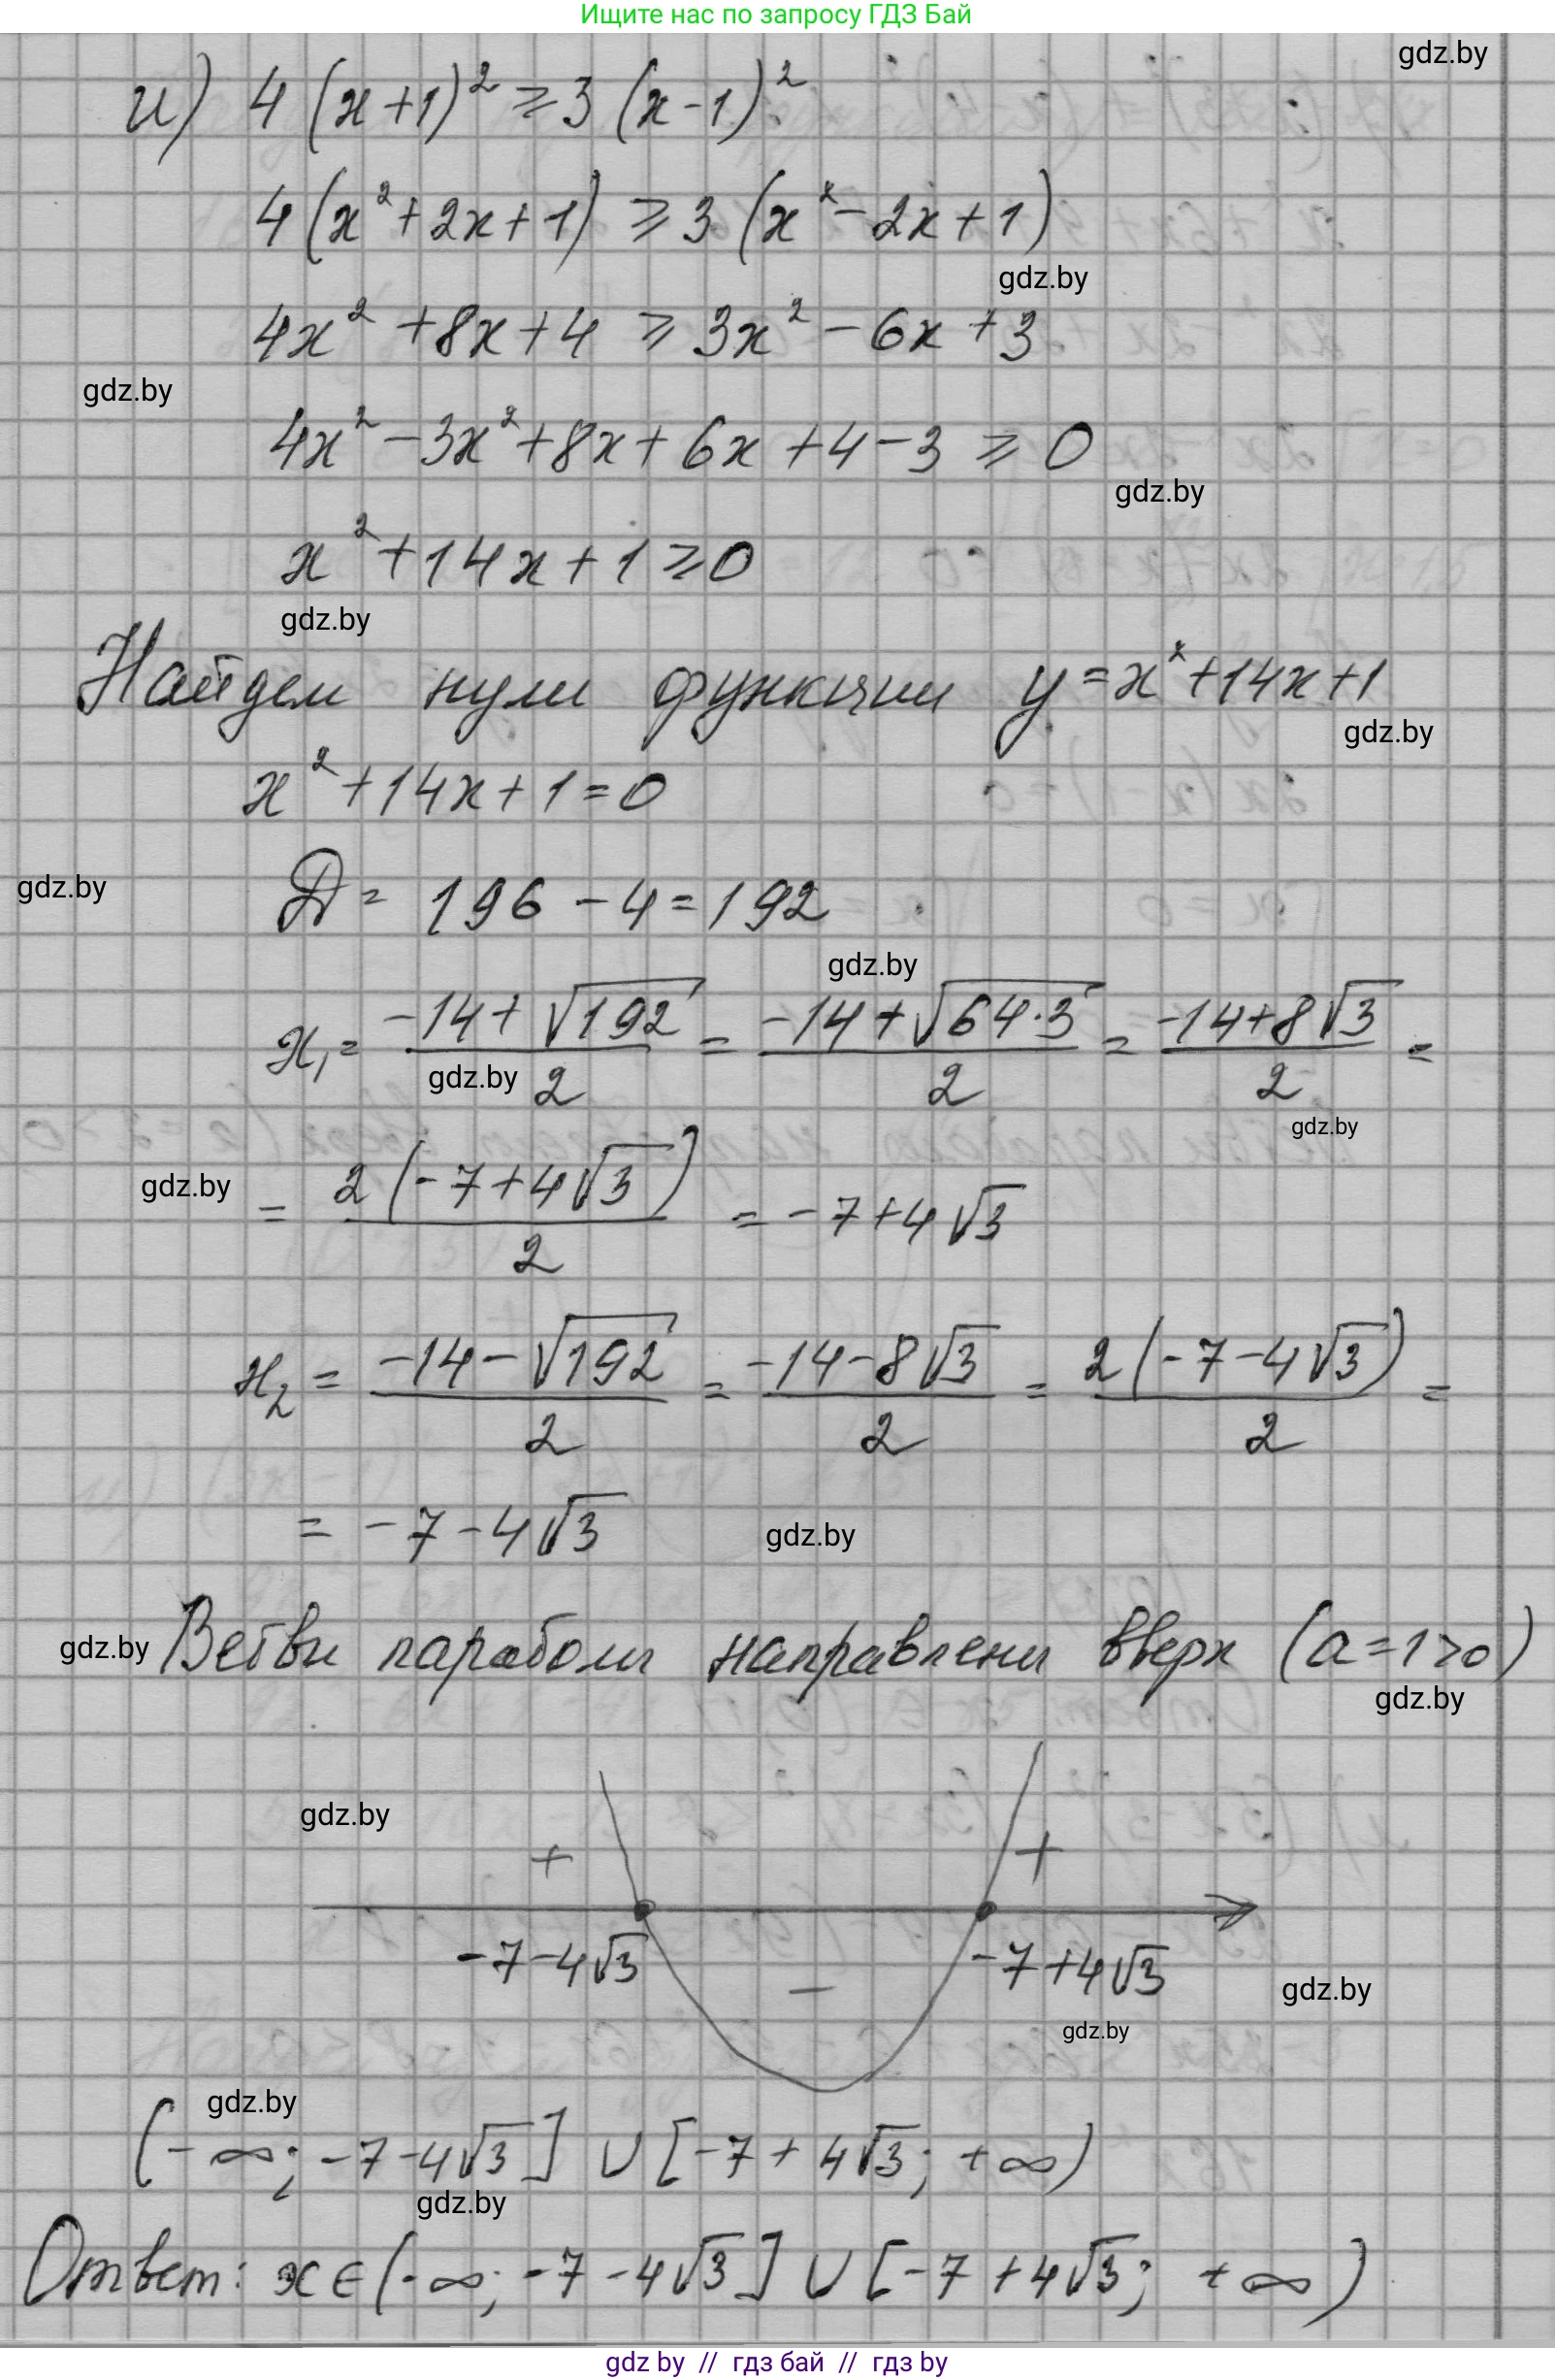 Ищите нас по запросу ГДЗ Бай
gdz.by
и) 4(x+1)² ≥ 3(x-1)²
4(x²+2x+1) ≥ 3(x²-2x+1)
gdz.by
4x² +8x+4 ≥ 3x² - 6x + 3
gdz.by
4x² - 3x² + 8x + 6x + 4 - 3 ≥ 0
gdz.by
x² + 14x + 1 ≥ 0
gdz.by
Найдем нули функции y = x² + 14x + 1
gdz.by
x² + 14x + 1 = 0
gdz.by
Д = 196 - 4 = 192
gdz.by
x₁ = (-14+√192)/2 = (-14+√(64·3))/2 = (-14+8√3)/2 =
gdz.by
gdz.by
gdz.by
= 2(-7+4√3)/2 = -7+4√3
x₂ = (-14-√192)/2 = (-14-8√3)/2 = 2(-7-4√3)/2 =
= -7-4√3
gdz.by
gdz.by
Ветви параболы направлены вверх (a=1>0)
gdz.by
gdz.by
+ +
-7-4√3 - -7+4√3
gdz.by
gdz.by
gdz.by
(-∞; -7-4√3] ∪ [-7+4√3; +∞)
gdz.by
Ответ: x∈(-∞; -7-4√3] ∪ [-7+4√3; +∞)
gdz by // гдз бай // гдз by